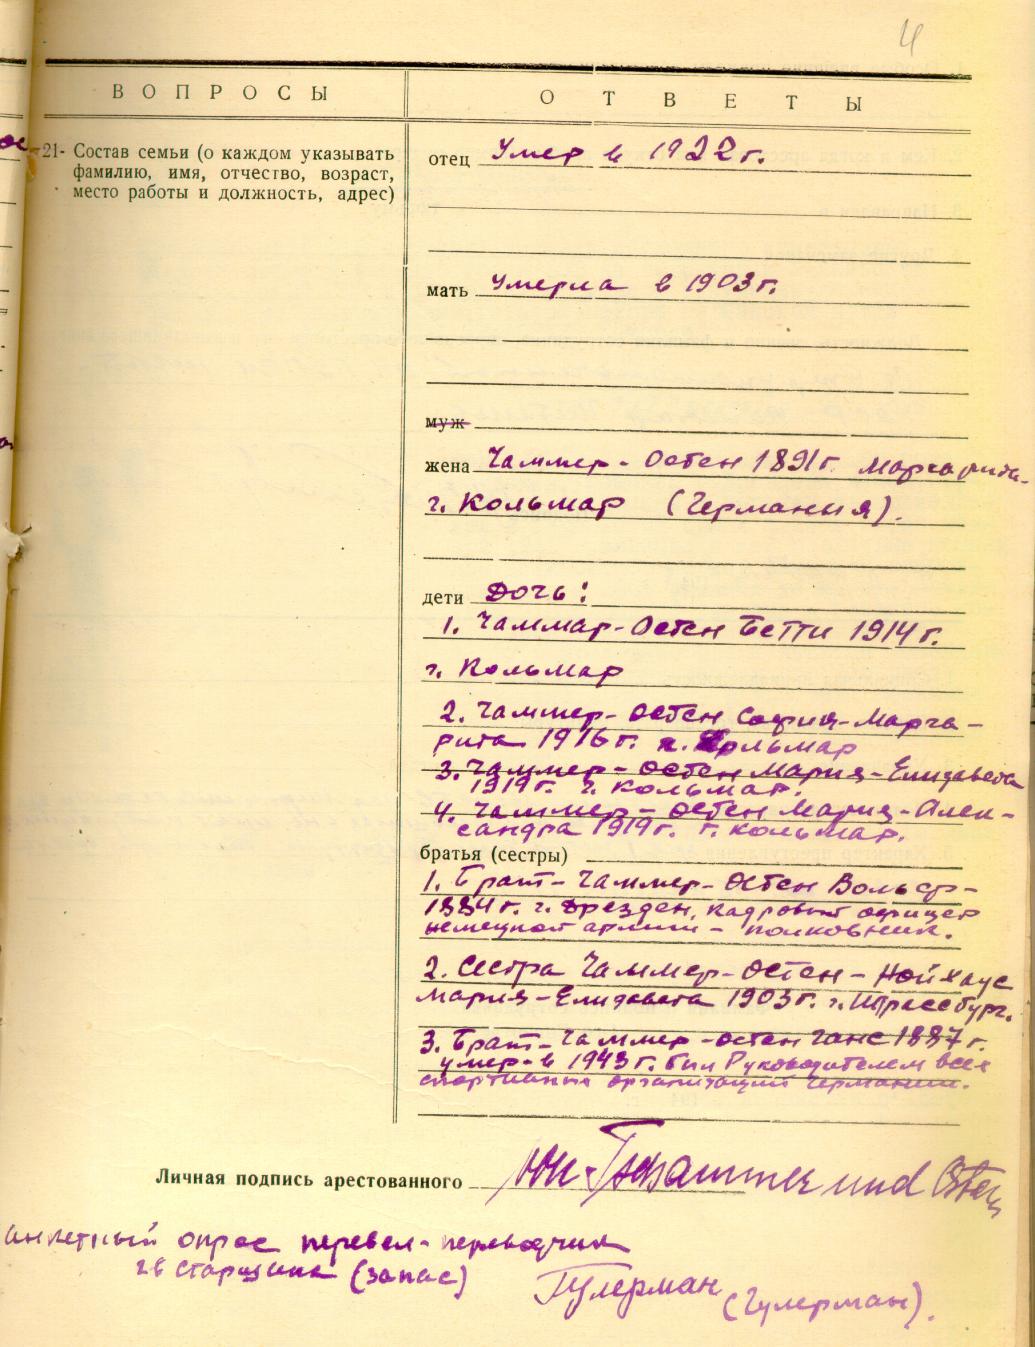 4
ВОПРОСЫ
ОТВЕТЫ
21- Состав семьи (о каждом указывать
фамилию, имя, отчество, возраст,
место работы и должность, адрес)
отец Умер в 1922 г.
мать Умерла в 1903 г.
муж
жена Чаммер-Остен 1891 г. Маргарита-
г. Кольмар (Германия).
дети Дочь:
1. Чаммар-Остен Бетти 1914 г.
г. Кольмар
2. Чаммер-Остен София-Марга-
рита 1916 г. г. Кольмар
3. Чаммер-Остен Мария-Елизавета
1919 г. г. Кольмар.
4. Чаммер-Остен Мария-Алек-
сандра 1919 г. г. Кольмар.
братья (сестры)
1. Брат-Чаммер-Остен Вольф-
1884 г. г. Дрезден, кадровый офицер
немецкой армии - полковник.
2. Сестра Чаммер-Остен-Нойхаус
Мария-Елизавета 1903 г. г. Штрассбург.
3. Брат-Чаммер-Остен Ганс 1887 г.
умер-в 1943 г. был Руководителем всех
спортивных организаций Германии.
Личная подпись арестованного von Tschammer und Osten
Анкетный опрос перевел-переводчик
гв старшина (запас) Гулерман (Гулерман).